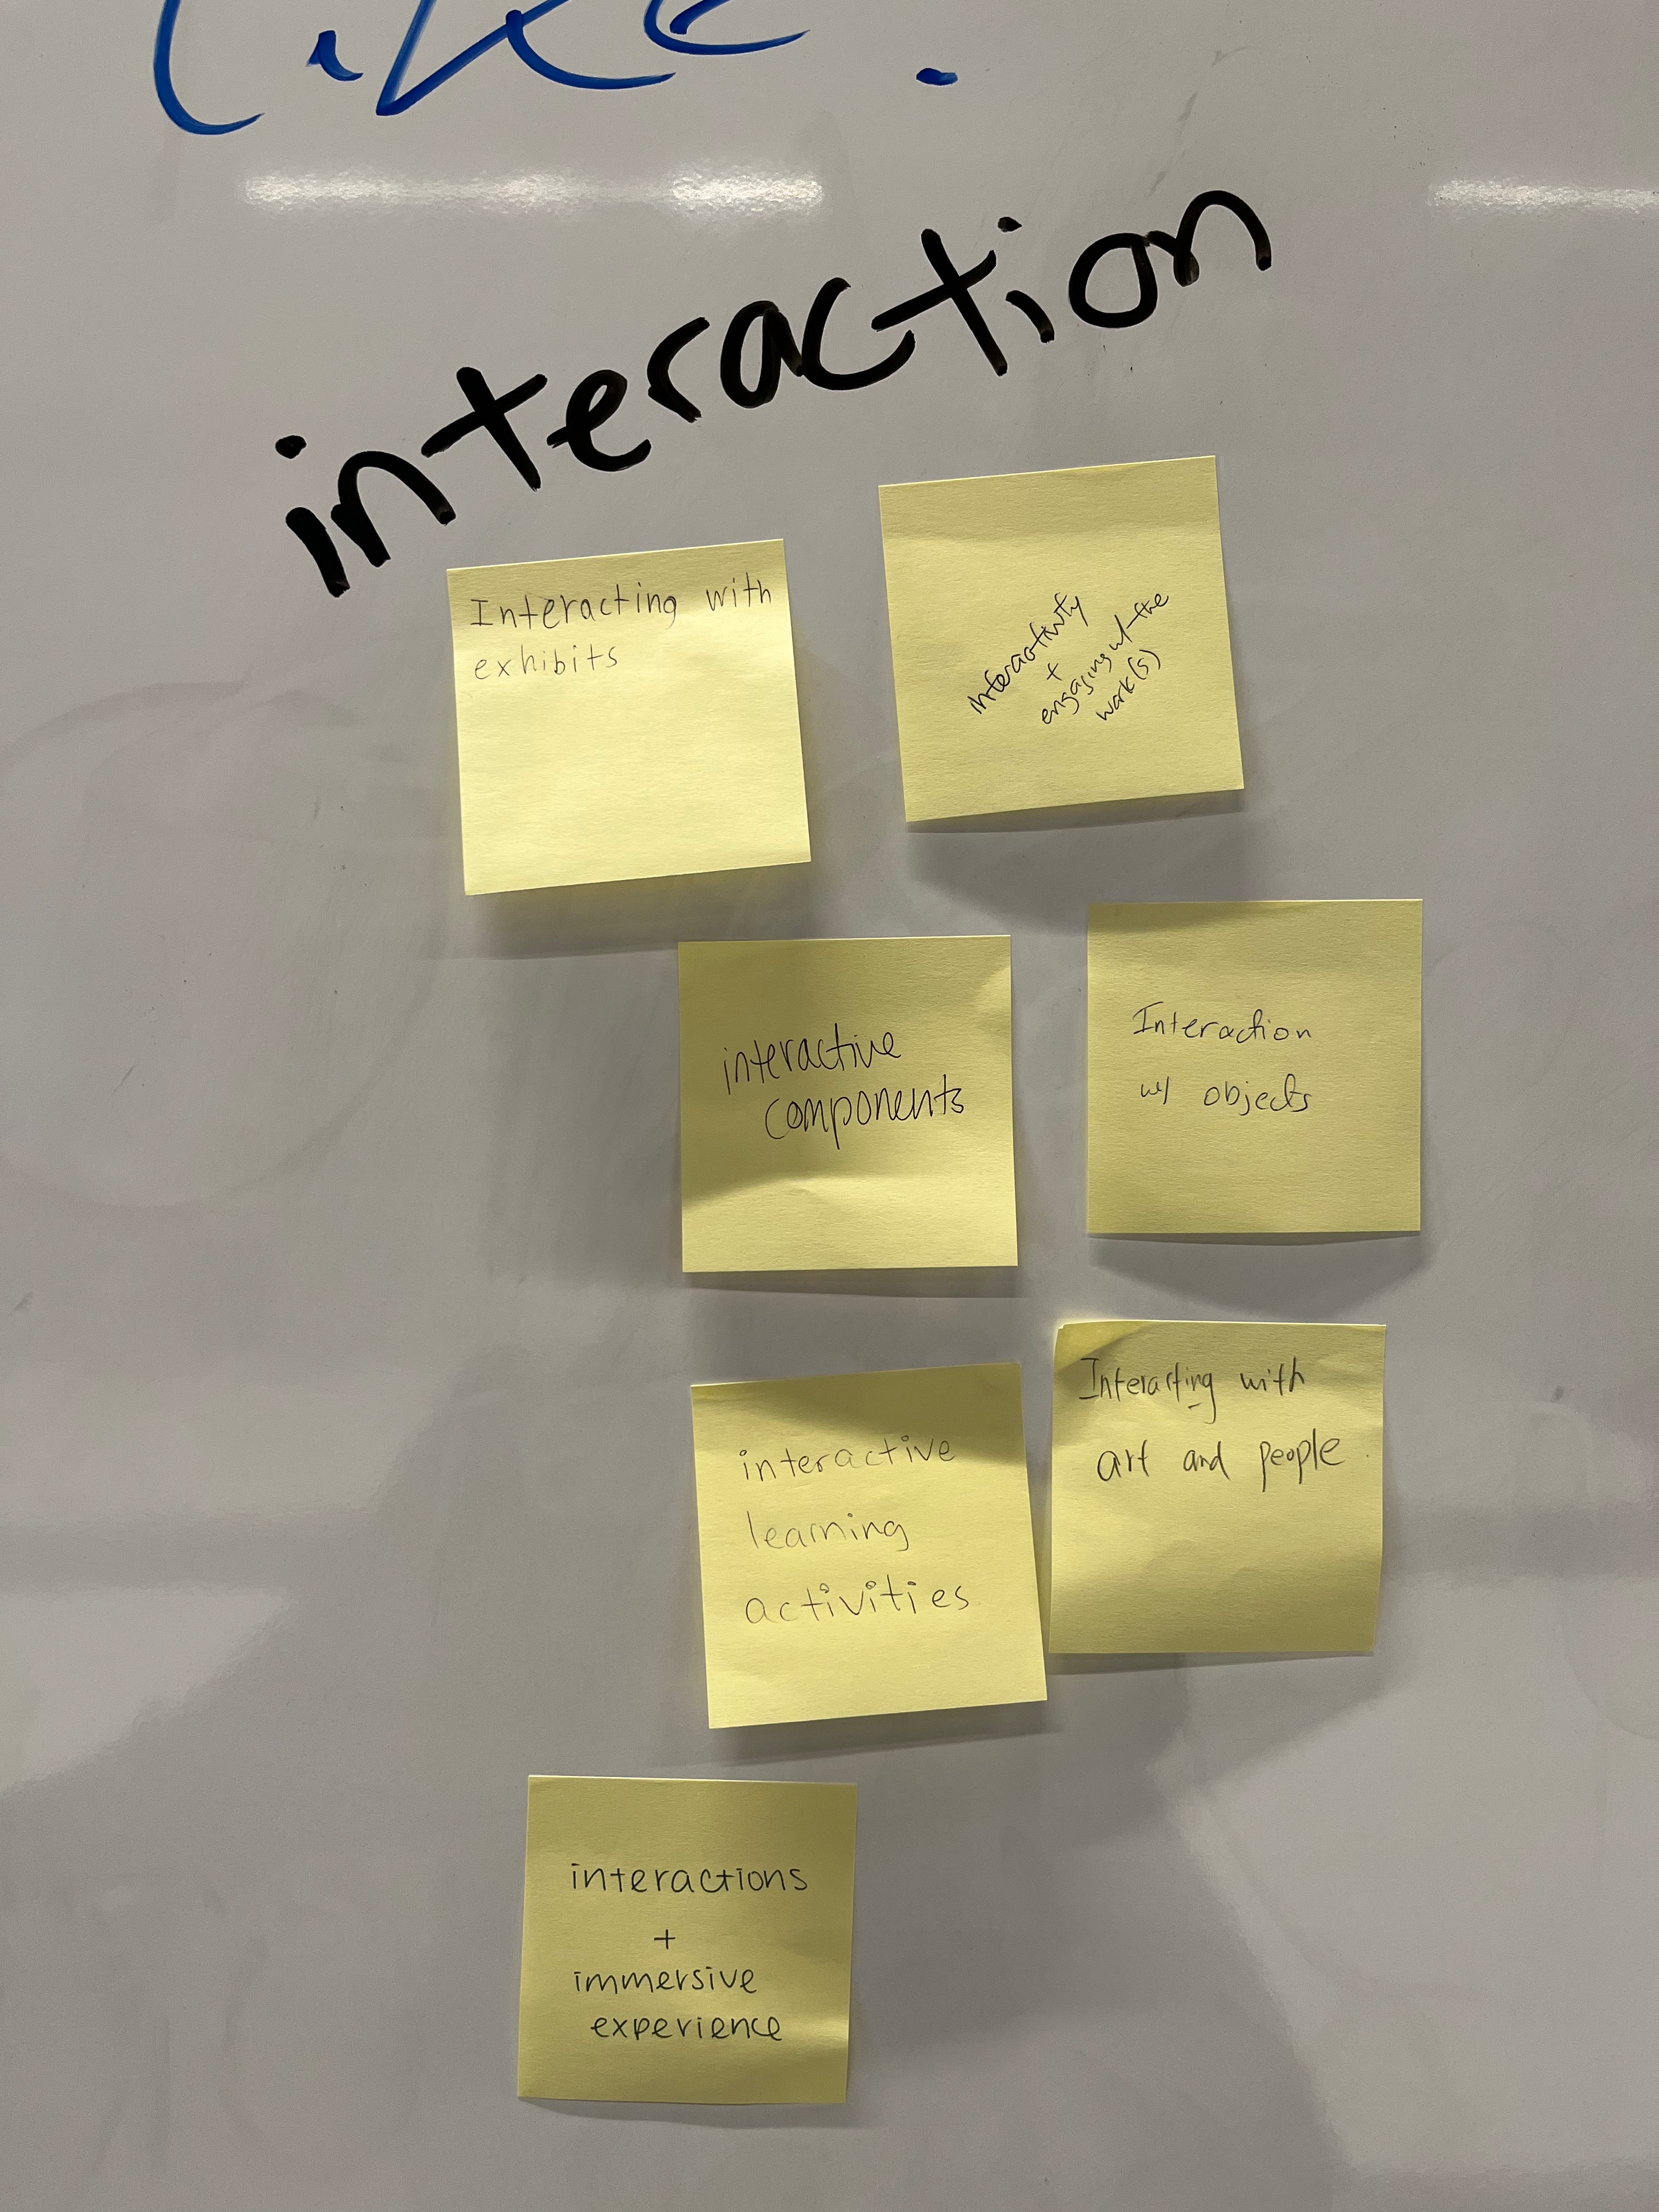 like.
interaction
Interacting with
exhibits
Interactivity
+
engaging w/ the
work(s)
interactive
components
Interaction
w/ objects
interactive
learning
activities
Interacting with
art and people
interactions
+
immersive
experience